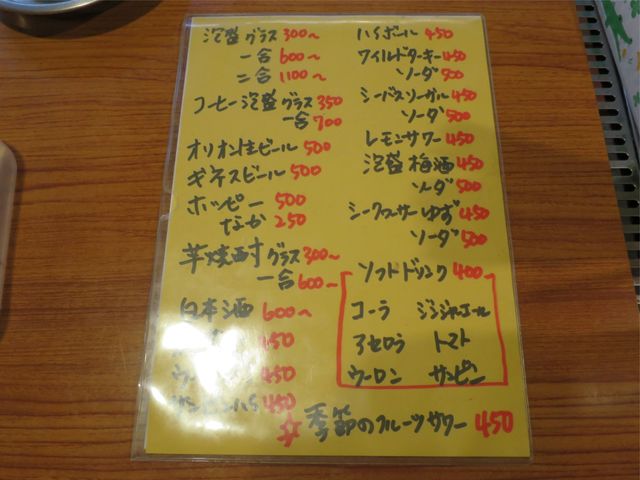 泡盛グラス300~
一合600~
二合1100~
コーヒー泡盛グラス350
一合700
オリオン生ビール500
ギネスビール500
ホッピー500
なか250
芋焼酎グラス300~
一合600~
日本酒600~
450
450
450
ハイボール450
ワイルドターキー450
ソーダ500
シーバスリーガル450
ソーダ500
レモンサワー450
泡盛梅酒450
ソーダ500
シークヮーサーゆず450
ソーダ500
ソフトドリンク400
コーラ ジンジャーエール
アセロラ トマト
ウーロン サンピン
☆季節のフルーツサワー450